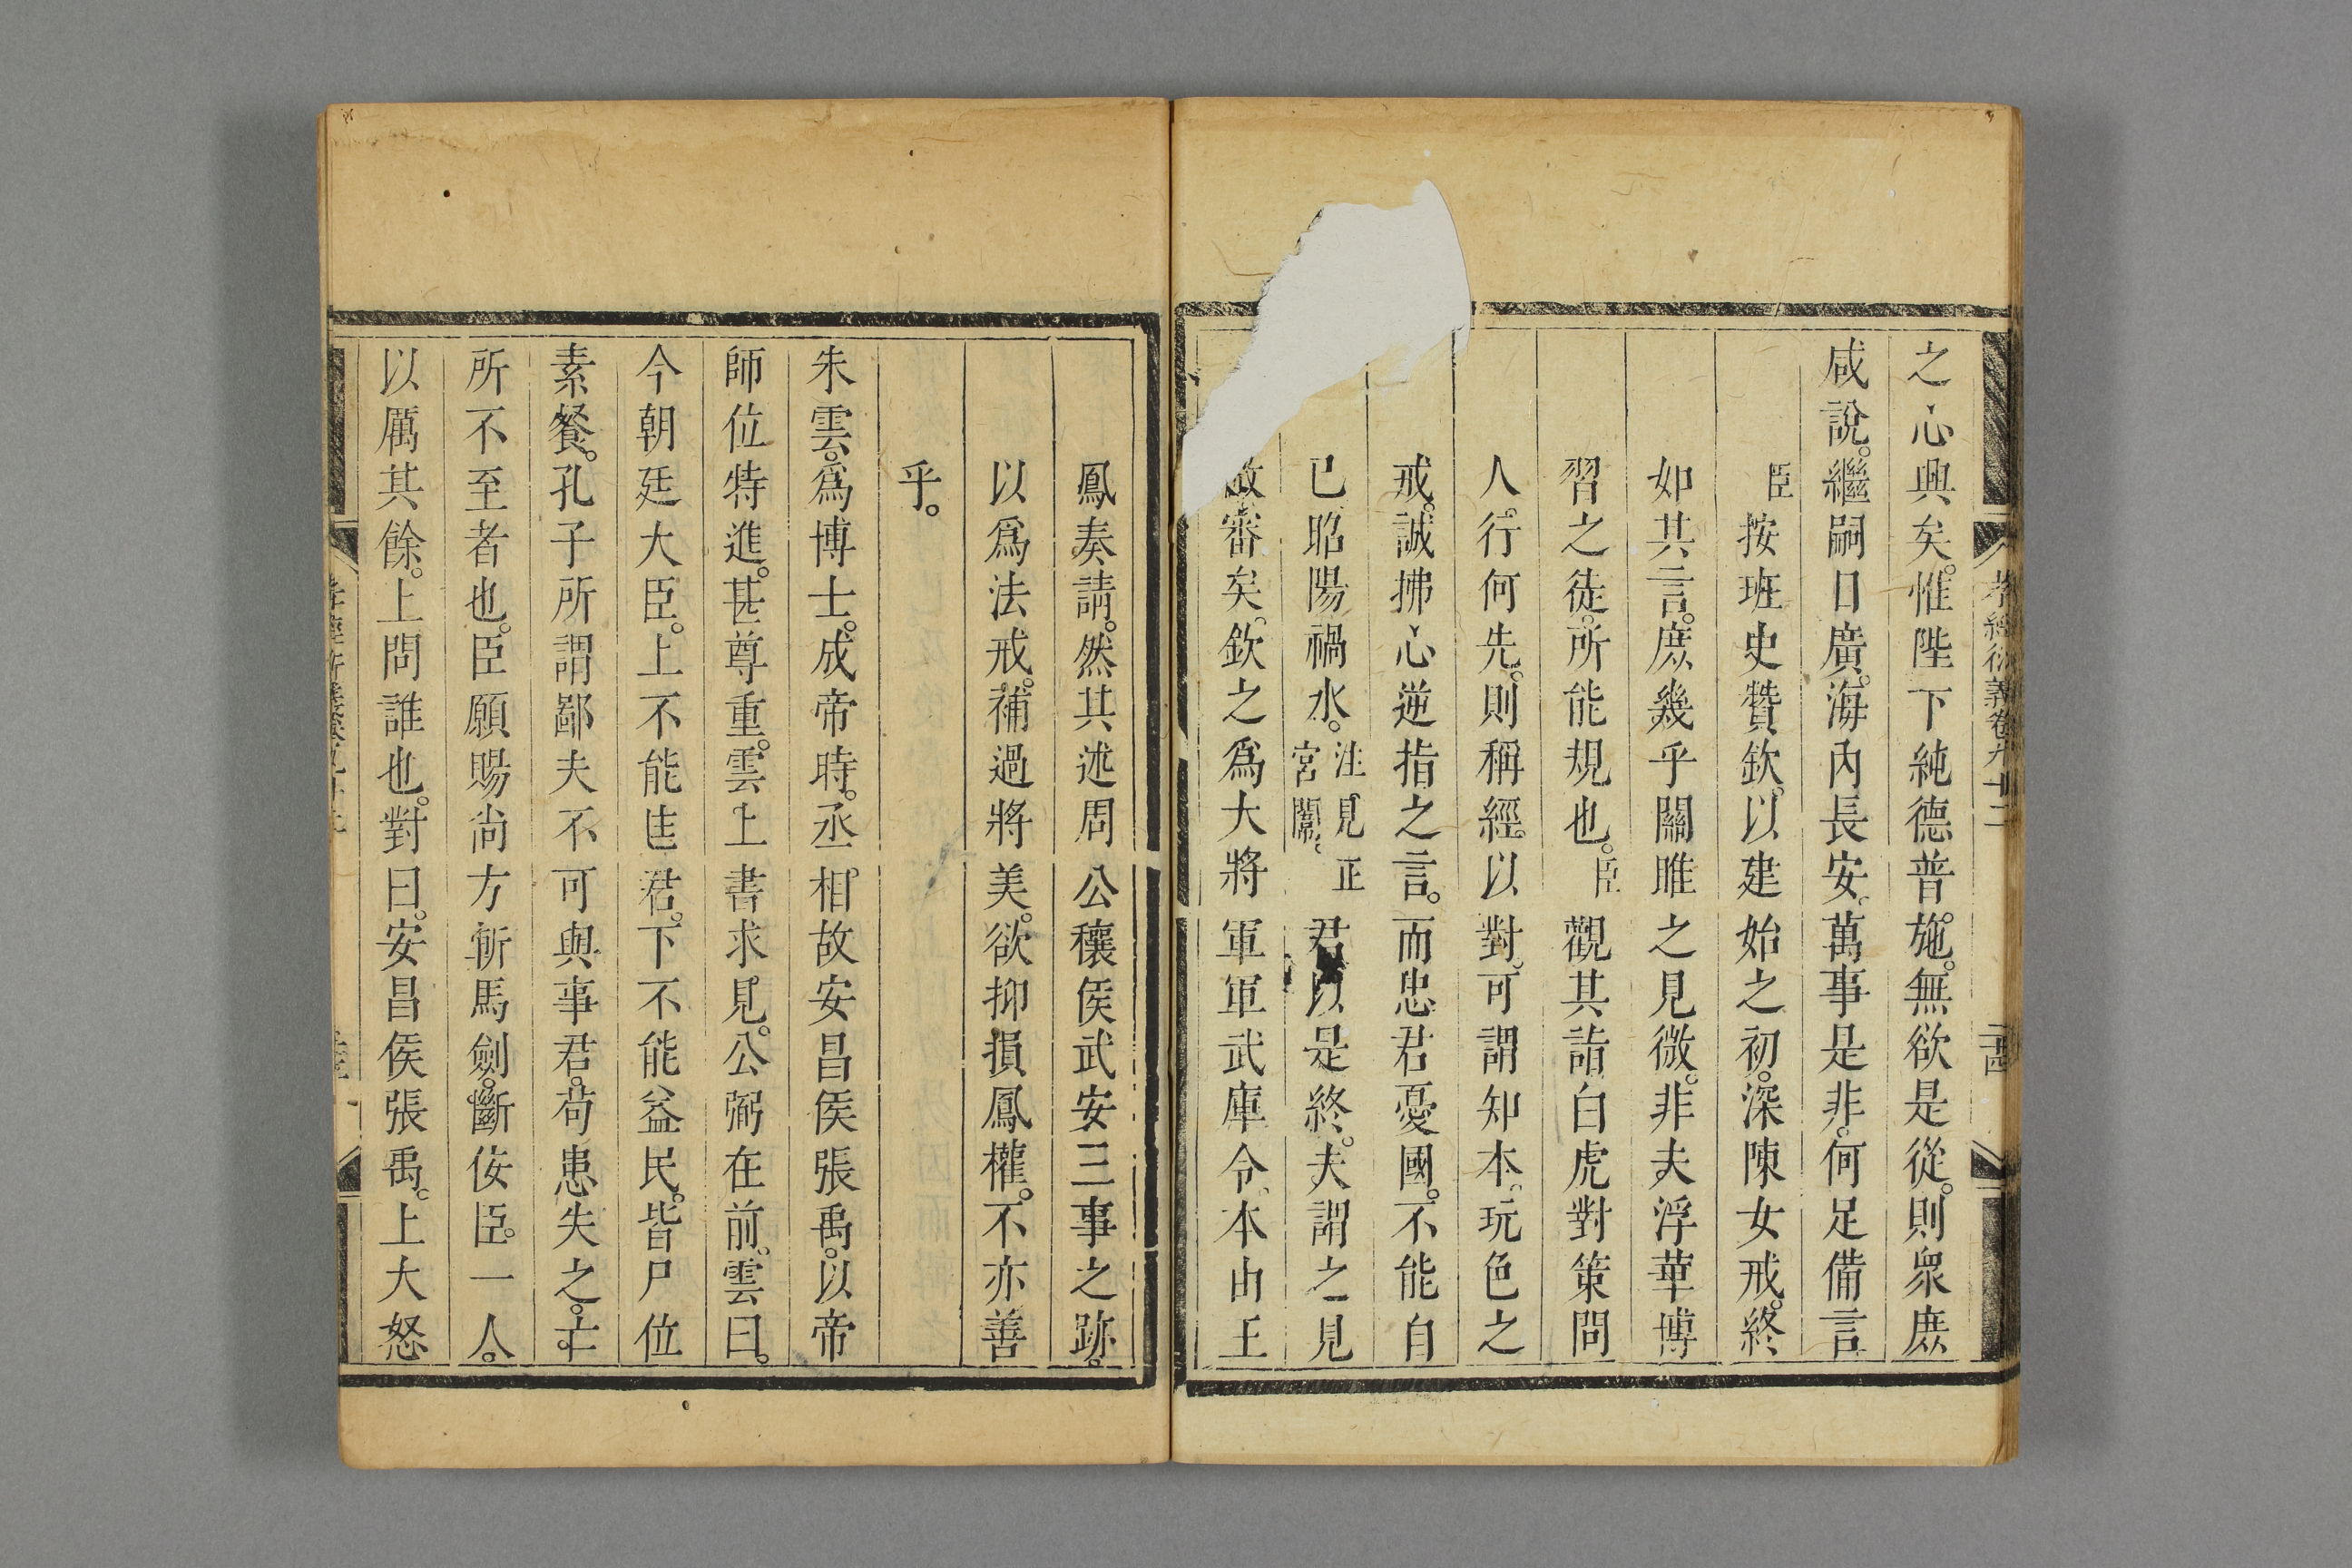 孝經衍義卷九十二
之心興矣。惟陛下純德普施。無欲是從。則衆庶
咸說。繼嗣日廣。海內長安。萬事是非。何足備言
臣按班史贊欽。以建始之初。深陳女戒。終
如其言。庶幾乎關雎之見微。非夫浮華博
習之徒。所能規也。臣觀其詣白虎對策問
人。行何先。則稱經。以對。可謂知本。玩色之
戒。誠拂心逆指之言。而忠君憂國。不能自
已。昭陽禍水。注見正宮闈。君以是終。夫謂之見
審矣。欽之爲大將軍軍武庫令。本由王
鳳奏請。然其述周公穰侯武安三事之跡。
以爲法戒。補過將美。欲抑損鳳權。不亦善
乎。
朱雲。爲博士。成帝時。丞相故安昌侯張禹。以帝
師位特進。甚尊重。雲上書求見。公卿在前。雲曰。
今朝廷大臣。上不能匡君。下不能益民。皆尸位
素餐。孔子所謂鄙夫不可與事君。苟患失之。亡
所不至者也。臣願賜尚方斬馬劍。斷佞臣。一人。
以厲其餘。上問誰也。對曰。安昌侯張禹。上大怒